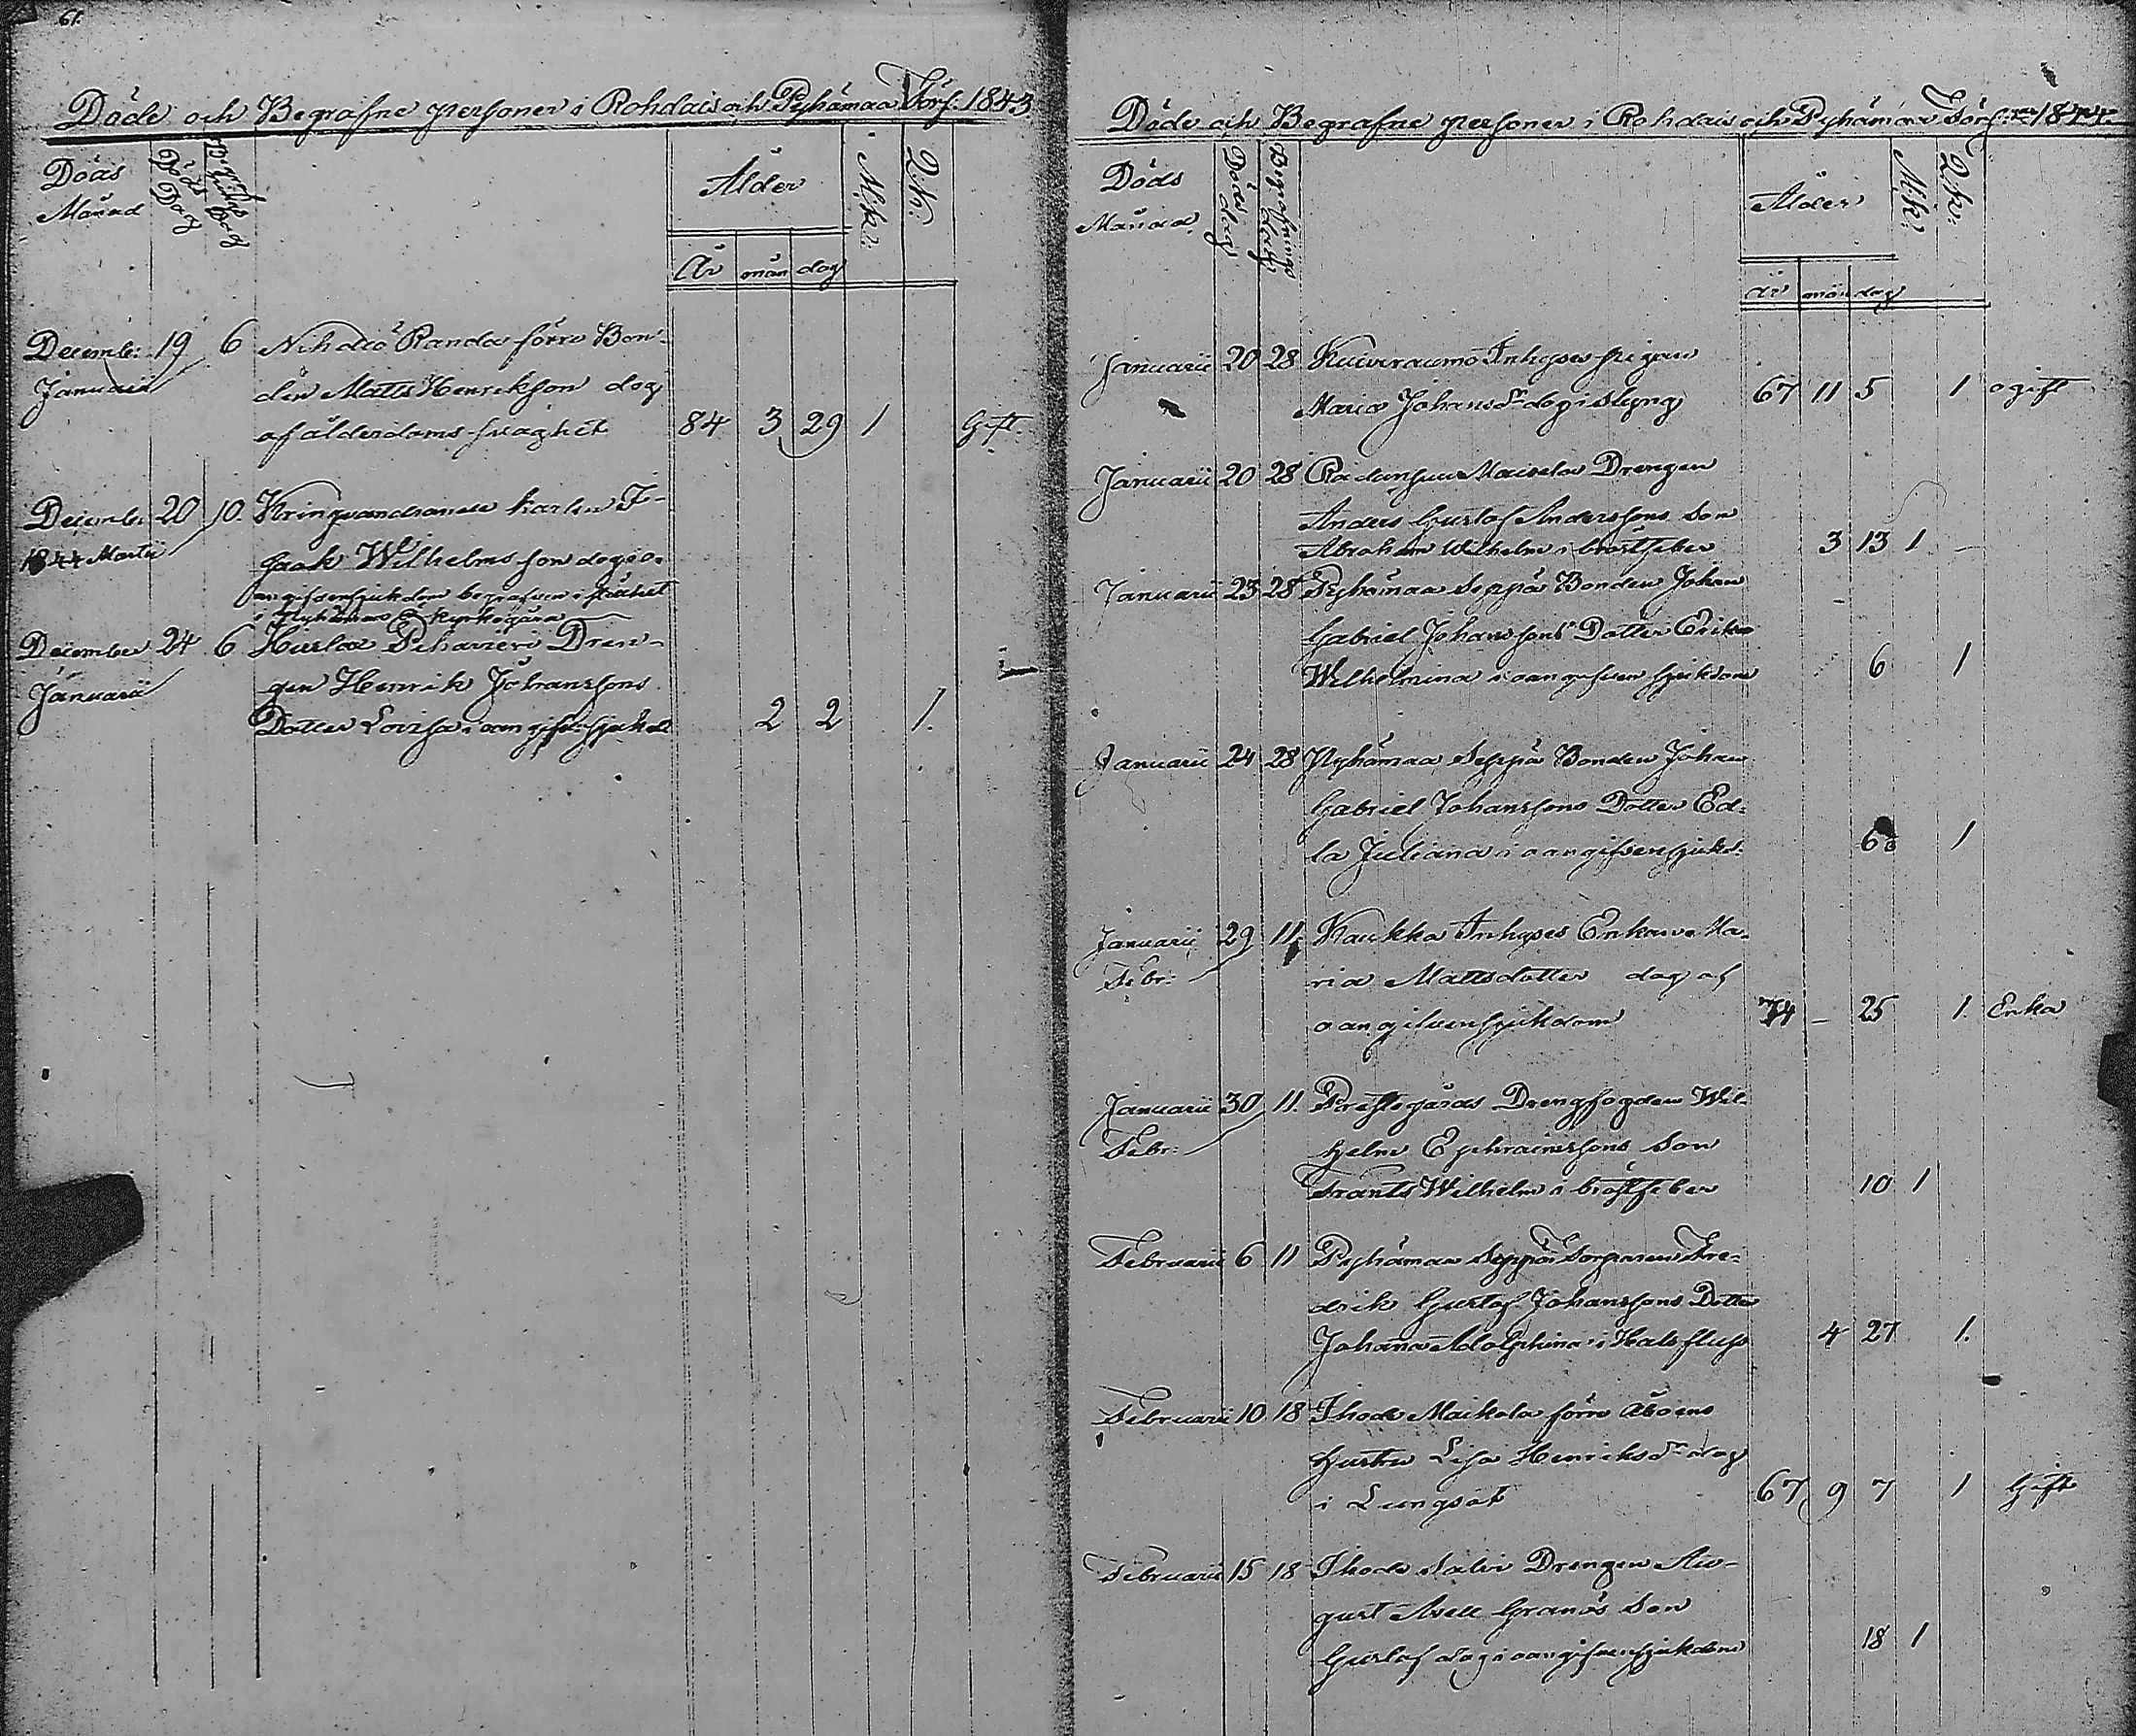 61.
Döde och Begrafne personer i Rohdais och Pyhämaa Förs: 1843
Döds Månad
Döds Dag
Begrafnings Dag
Ålder
År mån dag
M.k:
Q.k:
Decemb: 19 6 Nihdiö Randa förre Bon-
Januarii den Matts Henrikson dog
af ålderdoms svaghet 84 3 29 1 Gift.
December 20 10. Kringvandrande karlen I-
1844 Martii saak Wilhelmsson dog i o-
angifven sjukdom begrafven i
i Pyhämaa kyrkogård
December 24 6 Hirslax Pihavieri Dren-
Januarii gen Henrik Johanssons
Dotter Lovisa i oangifv: sjukd 2 2 1.
Döde och Begrafne personer i Rohdais och Pyhämaa Förs: 1844
Döds Månad
Döds dag
Begrafnings dag
Ålder
år mån dag
M.k:
Q.k:
Januarii 20 28 Kuivraumo Inhyses pigan
Maria Johansdr dog i styng 67 11 5 1 ogift
Januarii 20 28 Maisela Drengen
Anders Gustaf Anderssons Son
Abraham Wilhelm i bröstfeber 3 13 1
Januarii 23 28 Pyhämaa Seppä Bonden Johan
Gabriel Johanssons Dotter Erika
Wilhelmina i oangifven sjukdom 6 1
Januarii 24 28 Pyhämaa Seppä Bonden Johan
Gabriel Johanssons Dotter Ed-
la Juliana i oangifven sjukd: 6 1
Januarii 29 11. Kaukka Inhyses Enkan Ma-
Febr: ria Mattsdotter dog af
oangifven sjukdom 74 – 25 1. Enka
Januarii 30 11. Prestegårds Drengfogden Wil-
Febr: helm Ephraimssons Son
Frants Wilhelm i bröstfeber 10 1
Februarii 6 11 Pyhämaa Seppä Torparen Fre-
drik Gustaf Johanssons Dotter
Johanna Adolphina i Halsfluss 4 27 1.
Februarii 10 18 Ihode Maikola förre Åboens
hustru Lisa Henriksdr dog
i Lungsot 67 9 7 1 Gift
Februarii 15 18 Ihode Salvi Drengen Au-
gust Axell Granös Son
Gustaf dog i oangifven sjukdom 18 1